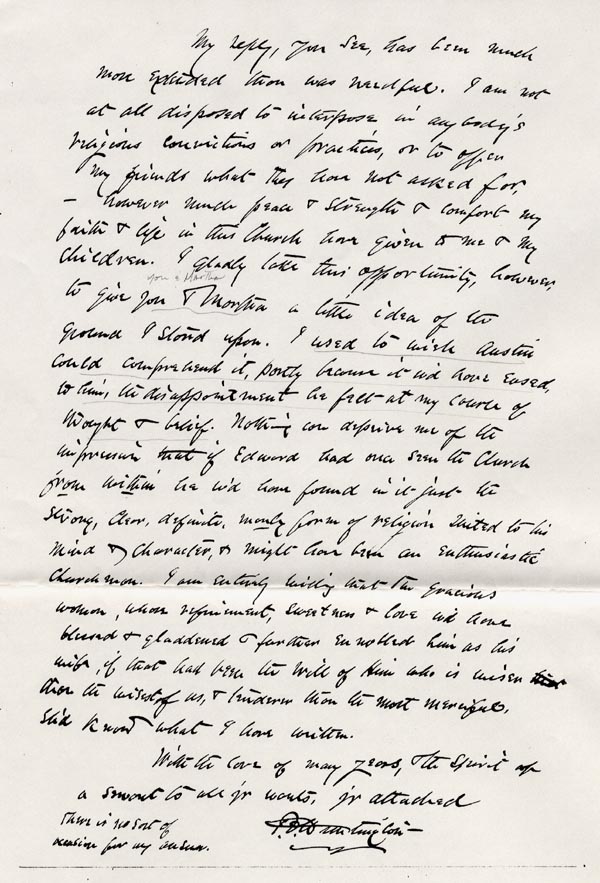 My reply, you see, has been much
more extended than was needful. I am not
at all disposed to interpose in anybody's
religious convictions or practices, or to open
my friends what they have not asked for
– however much peace & strength & comfort my
faith & life in this Church have given to me & my
children. I gladly take this opportunity, however,
you & Martha
to give you & Martha a little idea of the
ground I stand upon. I used to wish Austin
could comprehend it, partly because it wd have eased,
to him, the disappointment he felt at my course of
thought & belief. Nothing can deprive me of the
impression that if Edward had once seen the Church
from within he wd have found in it just the
strong, clear, definite, manly form of religion suited to his
mind & character, & might have been an enthusiastic
Churchman. I am entirely willing that the gracious
woman, whose refinement, sweetness & love wd have
blessed & gladdened & further ennobled him as his
wife, if that had been the Will of Him who is wiser
than the wisest of us, & tenderer than the most merciful,
shd know what I have written.
With the love of many years, & the spirit of
a servant to all yr wants, yr attached
F. D. Huntington
There is no sort of
occasion for any answer.